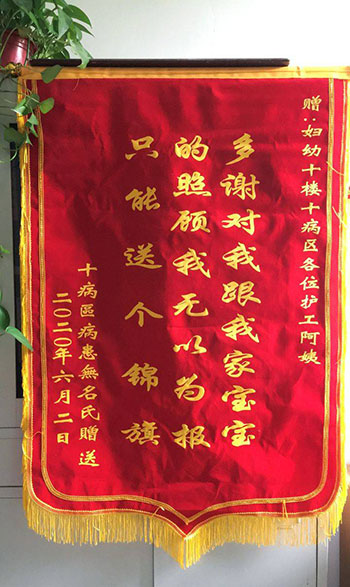 赠：妇幼十楼十病区各位护工阿姨
多谢对我跟我家宝宝
的照顾我无以为报
只能送个锦旗
十病區病患無名氏贈送
二〇二〇年六月二日